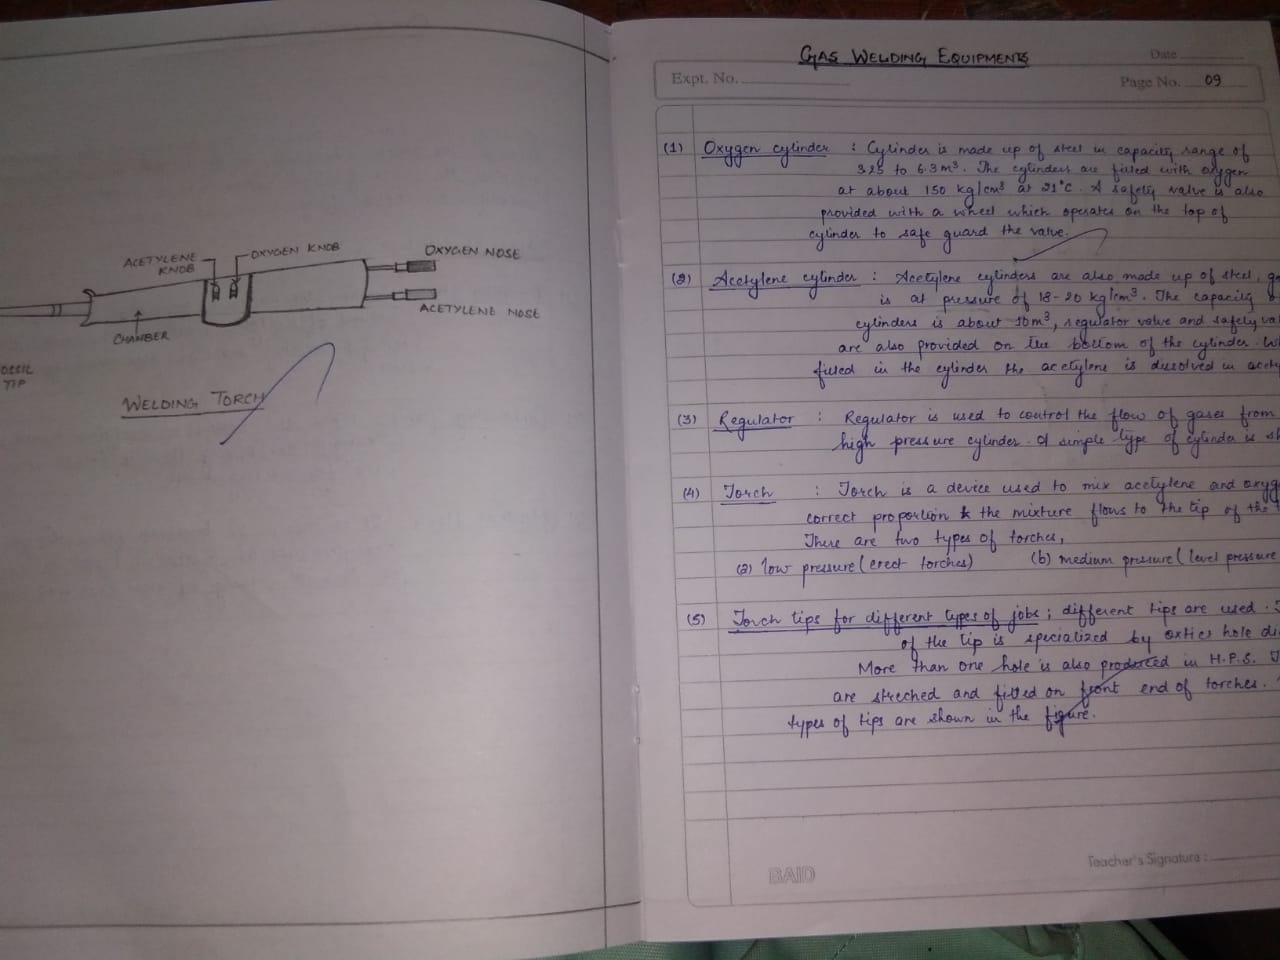 ACETYLENE
KNOB
OXYGEN KNOB
OXYGEN NOSE
ACETYLENE NOSE
CHAMBER
TIP
WELDING TORCH
GAS WELDING EQUIPMENTS
Date
Expt. No.
Page No. 09
(1) Oxygen cylinder : Cylinder is made up of steel in capacity range of
3.25 to 6.3 m³. The cylinders are filled with oxygen
at about 150 kg/cm³ at 21°C. A safety valve is also
provided with a wheel which operates on the top of
cylinder to safe guard the valve.
(2) Acetylene cylinder : Acetylene cylinders are also made up of steel,
is at pressure of 18-20 kg/cm³. The capacity
cylinders is about 10m³, regulator valve and safety
are also provided on the bottom of the cylinder.
filled in the cylinder the acetylene is dissolved in
(3) Regulator : Regulator is used to control the flow of gases from
high pressure cylinder. A simple type of cylinder is
(4) Torch : Torch is a device used to mix acetylene and
correct proportion & the mixture flows to the tip of the
There are two types of torches,
(a) low pressure (erect torches) (b) medium pressure (level pressure
(5) Torch tips for different types of jobs ; different tips are used.
of the tip is specialized by hole
More than one hole is also produced in H.P.S.
are streched and fitted on front end of torches.
types of tips are shown in the figure.
BAID
Teacher's Signature :